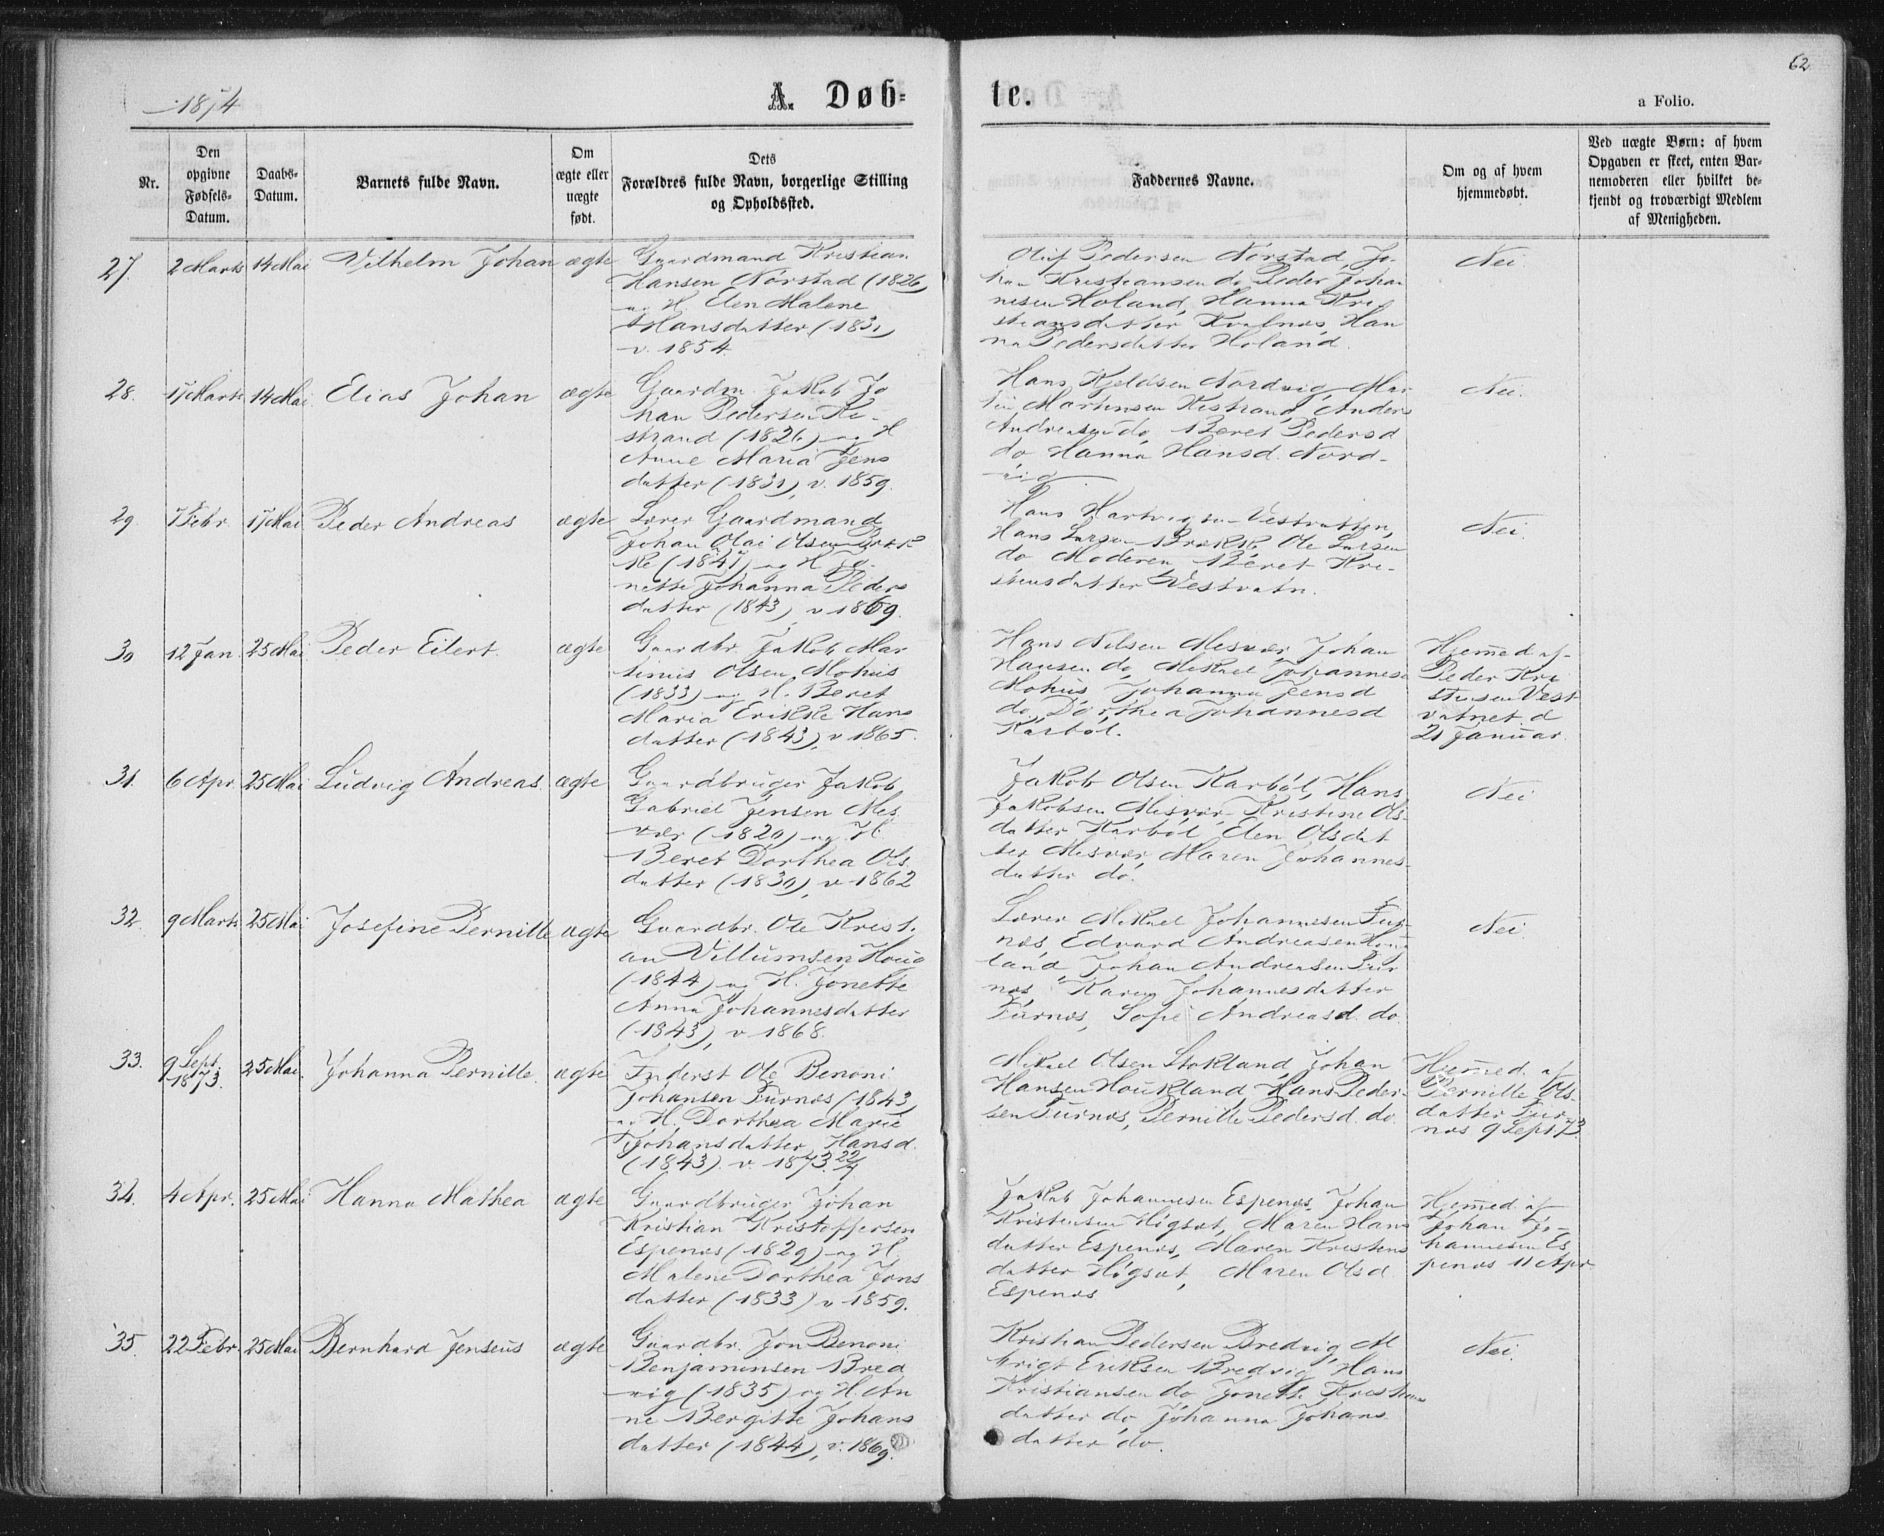 1874
A. Døb-
te.
62
a Folio.
Nr.
Den opgivne Fødsels-Datum.
Daabs-Datum.
Barnets fulde Navn.
Om ægte eller uægte født.
Dets
Forældres fulde Navn, borgerlige Stilling
og Opholdssted.
Faddernes Navne.
Om og af hvem
hjemmedøbt.
Ved uægte Børn: af hvem
Opgaven er skeet, enten Bar-
nemoderen eller hvilket be-
kjendt og troværdigt Medlem
af Menigheden.
27 2 Marts 14 Mai Vilhelm Johan ægte
Gaardmand Kristian
Hansen Nørstad (1826)
og H. Elen Malene
Hansdatter (1831)
v. 1854
Oluf Pedersen Nørstad, Jo-
han Kristiansen do Peder Johan
nesen Holand, Hanna Kri
stiansdatter Kvalnes, Han
na Pedersdatter Holand.
Nei.
28. 17 Marts 14 Mai Elias Johan ægte
Gaardm. Jakob Jo
han Pedersen Re-
strand (1826) og H
Anne Maria Jens
datter (1831), v. 1859.
Hans Kjeldsen Nordvig, Mar
tin Mortensen Restrand, Anders
Andreasen do, Beret Pedersd
do Hanna Hansd. Nord-
vig
Nei.
29. 7 Febr. 17 Mai Peder Andreas ægte
Lærer Gaardmand
Johan Olai Olsen Bræk
ke (1841) og H Jo-
nette Johanna Peders
datter (1843), v 1869.
Hans Hartvigsen Vestvatten,
Hans Larsen Brække, Ole Larsen
do Moderen Beret Kri-
stensdatter Vestvatn.
Nei.
30 12 Jan. 25 Mai Peder Eilert. ægte
Gaardbr. Jakob Mar
tinius Olsen Mohus
(1833) og H. Beret
Maria Erikke Hans
datter (1843), v 1865.
Hans Nilsen Mesvær Johan
Hansen do, Mikael Johannes
Mohus Johanna Jensd
do, Dorthea Johannesd
Karbøl.
Hjemmed af
Peder Kri
stensen Vest
vatnet d
21 Januar.
31. 6 Apr. 25 Mai Ludvig Andreas. ægte
Gaardbruger Jakob
Gabriel Jensen Mes
vær (1820) og H.
Beret Dorthea Ols
datter (1830), v 1862
Jakob Olsen Karbøl, Hans
Jakobsen Mesvær, Kristine Ols-
datter Karbøl, Elen Olsdat
ter Mesvær Maren Johannes-
datter do.
Nei
32. 9 Marts 25 Mai Josefine Pernille ægte
Gaardbr. Ole Krist.
an Villumsen Houg
(1844) og H. Jonette
Anna Johannesdatter
(1843), v 1868.
Lærer Mikael Johannesen Fur-
nes, Edvard Andreasen Hou
land Johan Andreasen Fur
nes Karen Johannesdatter
Furnes, Sofie Andreasd. do.
Nei.
33. 9 Sept. 1873. 25 Mai. Johanna Pernille. ægte
Inderst Ole Benoni
Johansen Furnes (1843)
og H. Dorthea Marie
Johansdatter, Hansd.
(1843) v 1873. 22/7
Mikael Olsen Stokland, Johan
Hansen Houkland, Hans Peder-
sen Furnes, Pernille Pedersd. do.
Hjemmed. af
Pernille Ols-
datter Fur-
nes 9 Sept 73
34. 4 Apr. 25 Mai Hanna Mathea ægte
Gaardbruger Johan
Kristian Kristoffersen
Espenes (1829) og H.
Malene Dorthea Jons
datter (1833) v 1859.
Jakob Johannesen Espenes, Johan
Kristensen Høgset, Maren Hans
datter Espenes, Maren Kristens
datter Høgset, Maren Olsd
Espenes
Hjemmed af
Johan Jo-
hannesen Es
penes 11 Apr.
35. 22 Febr. 25 Mai Bernhard Jenseus ægte
Gaardbr. Jon Benoni
Benjaminsen Bred
vig (1835) og H. An
ne Bergitte Johans
datter (1844), v. 1869.
Kristian Pedersen Bredvig,
Eriksen Bredvig, Hans
Kristiansen do Jonette Kristians
datter do, Johanna Johans
datter do.
Nei.